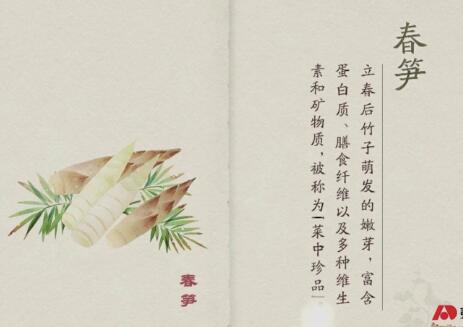 春笋
立春后竹子萌发的嫩芽，富含
蛋白质、膳食纤维以及多种维生
素和矿物质，被称为「菜中珍品」
春笋